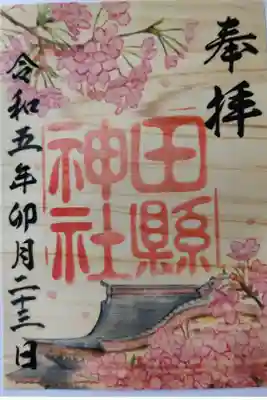 奉拝
田縣
神社
令和五年卯月二十三日